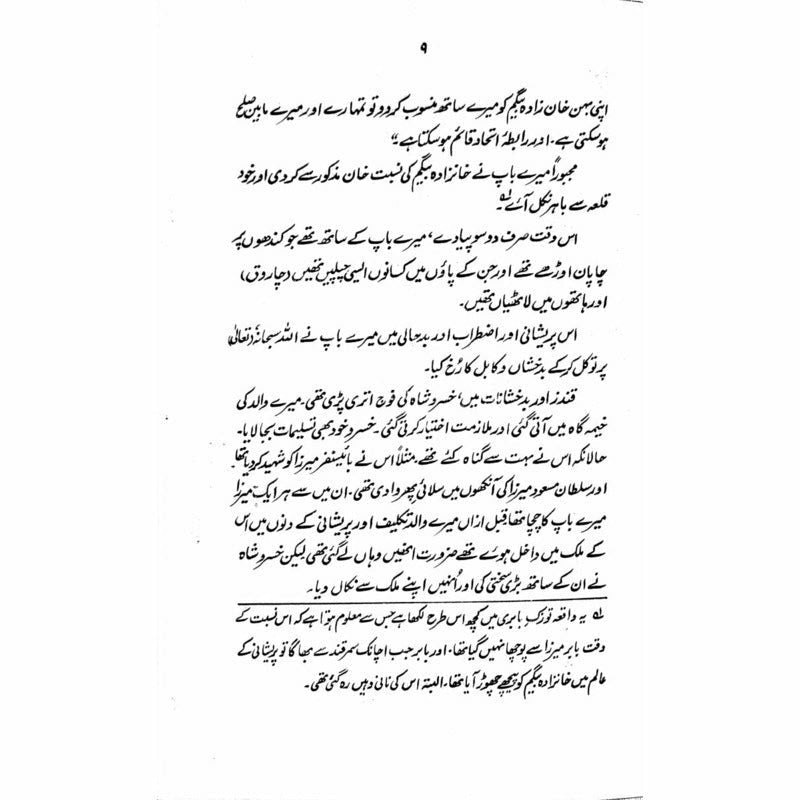 ۹
اپنی بہن خان زادہ بیگم کو میرے ساتھ منسوب کر دو تو تمہارے اور میرے مابین صلح
ہو سکتی ہے۔ اور رابطۂ اتحاد قائم ہو سکتا ہے۔"
مجبوراً میرے باپ نے خانزادہ بیگم کی نسبت خان مذکور سے کر دی اور خود
قلعہ سے باہر نکل آئے۔ لہ
اس وقت صرف دو سو پیادے، میرے باپ کے ساتھ تھے جو کندھوں پر
چاپان اوڑھے تھے اور جن کے پاؤں میں کسانوں ایسی چپلیں تھیں (چاروق)
اور ہاتھوں میں لاٹھیاں تھیں۔
اس پریشانی اور اضطراب اور بدحالی میں میرے باپ نے اللہ سبحانہٗ (تعالیٰ)
پر توکل کر کے بدخشاں و کابل کا رُخ کیا۔
قندز اور بدخشانات میں، خسرو شاہ کی فوج اتری پڑی تھی۔ میرے والد کی
خیمہ گاہ میں آتی گئی اور ملازمت اختیار کرتی گئی۔ خسرو خود بھی تسلیمات بجا لایا۔
حالانکہ اس نے بہت سے گناہ کئے تھے۔ مثلاً اس نے بائیسنغر میرزا کو شہید کر دیا تھا
اور سلطان مسعود میرزا کی آنکھوں میں سلائی پھروا دی تھی۔ ان میں سے ہر ایک میرزا
میرے باپ کا چچا تھا قبل ازاں میرے والد تکلیف اور پریشانی کے دنوں میں اس
کے ملک میں داخل ہوئے تھے ضرورت انھیں وہاں لے گئی تھی لیکن خسرو شاہ
نے ان کے ساتھ بڑی سختی کی اور اُنہیں اپنے ملک سے نکال دیا۔
لہ یہ واقعہ توزک بابری میں کچھ اس طرح لکھا ہے جس سے معلوم ہوتا ہے کہ اس نسبت کے
وقت بابر میرزا سے پوچھا نہیں گیا تھا۔ اور بابر جب اچانک سمرقند سے بھاگا تو پریشانی کے
عالم میں خانزادہ بیگم کو پیچھے چھوڑ آیا تھا۔ البتہ اس کی نانی وہیں رہ گئی تھی۔